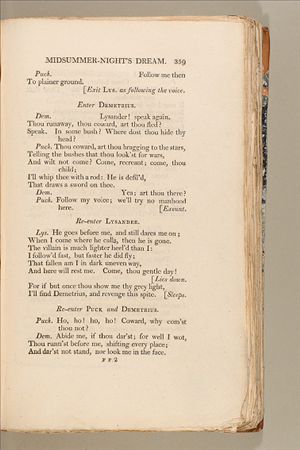 MIDSUMMER-NIGHT'S DREAM. 359
Puck. Follow me then
To plainer ground.
[Exit Lys. as following the voice.
Enter Demetrius.
Dem. Lysander! speak again.
Thou runaway, thou coward, art thou fled?
Speak. In some bush? Where dost thou hide thy
head?
Puck. Thou coward, art thou bragging to the stars,
Telling the bushes that thou look'st for wars,
And wilt not come? Come, recreant; come, thou
child;
I'll whip thee with a rod: He is defil'd,
That draws a sword on thee.
Dem. Yea; art thou there?
Puck. Follow my voice; we'll try no manhood
here. [Exeunt.
Re-enter Lysander.
Lys. He goes before me, and still dares me on;
When I come where he calls, then he is gone.
The villain is much lighter heel'd than I:
I follow'd fast, but faster he did fly;
That fallen am I in dark uneven way,
And here will rest me. Come, thou gentle day!
[Lies down.
For if but once thou show me thy grey light,
I'll find Demetrius, and revenge this spite. [Sleeps.
Re-enter Puck and Demetrius.
Puck. Ho, ho! ho, ho! Coward, why com'st
thou not?
Dem. Abide me, if thou dar'st; for well I wot,
Thou runn'st before me, shifting every place;
And dar'st not stand, nor look me in the face.
F F 2